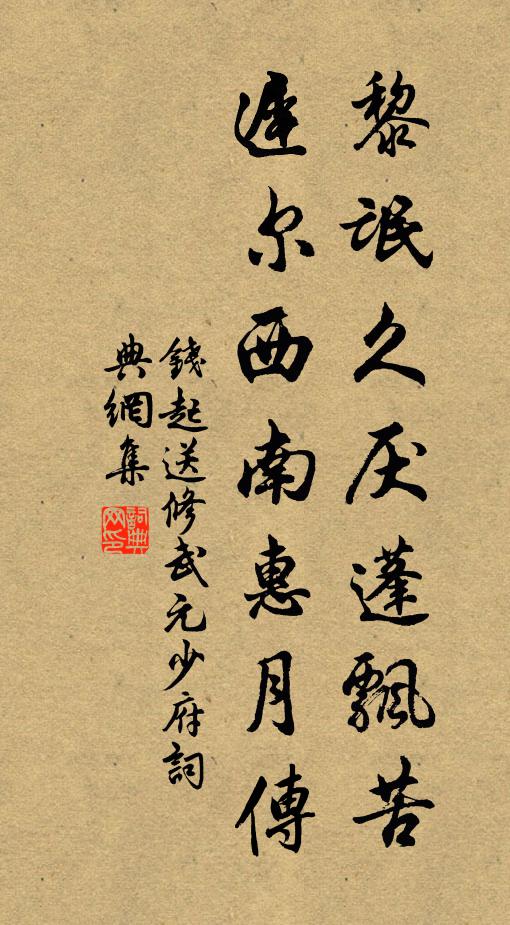 黎氓久厌蓬飘苦
遲尔西南惠月傳
錢起送修武元少府詞
典網集
詞典
网印